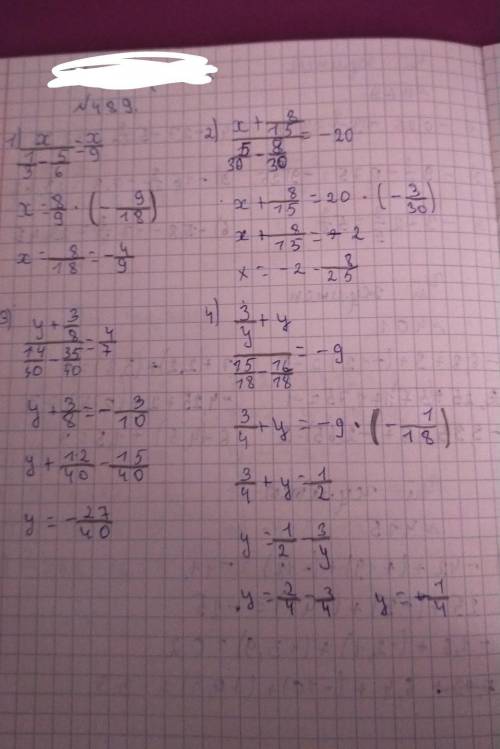 №489.
1) x / (1/3 - 5/6) = x/9
x = 8/9 · (- 9/18)
x = 8/18 = - 4/9
2) (x + 8/15) / (5/30 - 8/30) = -20
x + 8/15 = 20 · (- 3/30)
x + 8/15 = + 2
x = -2 - 8/25
3) (y + 3/8) / (14/30 - 35/40) = 4/7
y + 3/8 = - 3/10
y + 12/40 - 15/40
y = - 27/40
4) (3/y + y) / (15/18 - 16/18) = -9
3/4 + y = -9 · (- 1/18)
3/4 + y = 1/2
y = 1/2 - 3/y
y = 2/4 - 3/4 y = - 1/4